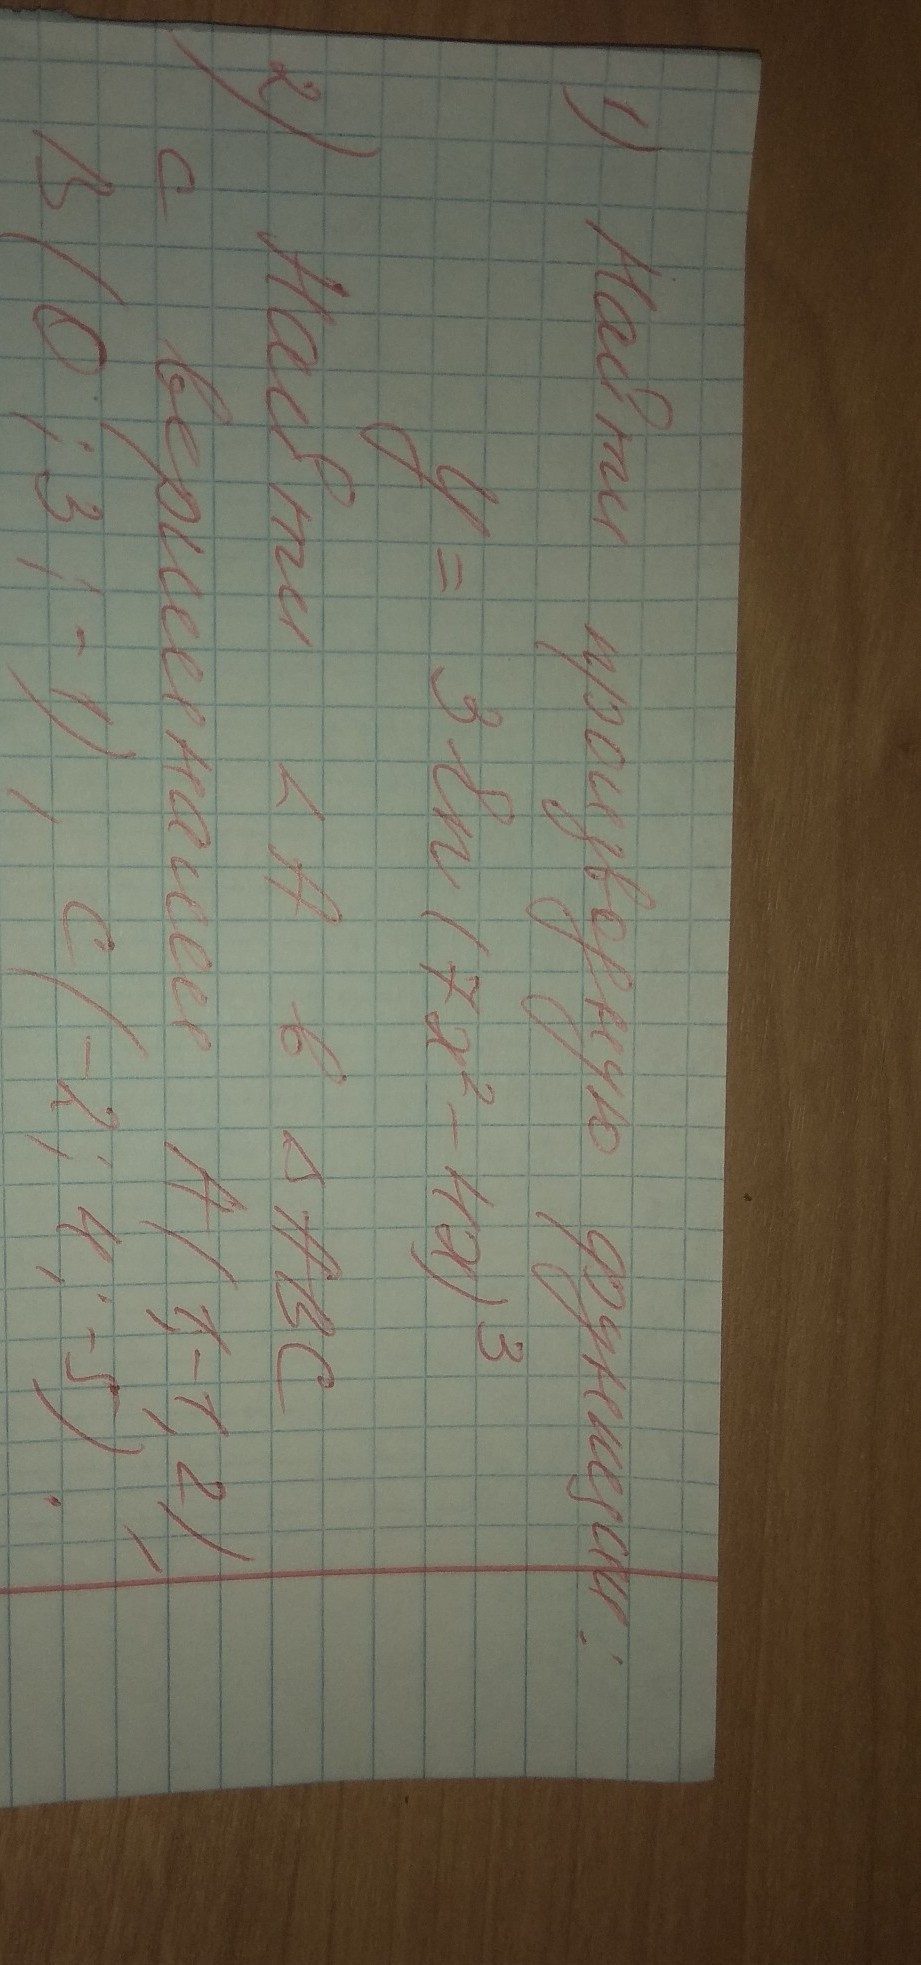 1) Найти производную функции:
y = 3 ln (7x² - 4x)³
2) Найти <A в △ABC
с вершинами A(1;-1;2),
B(0;3;-1), C(-2;4;-5).